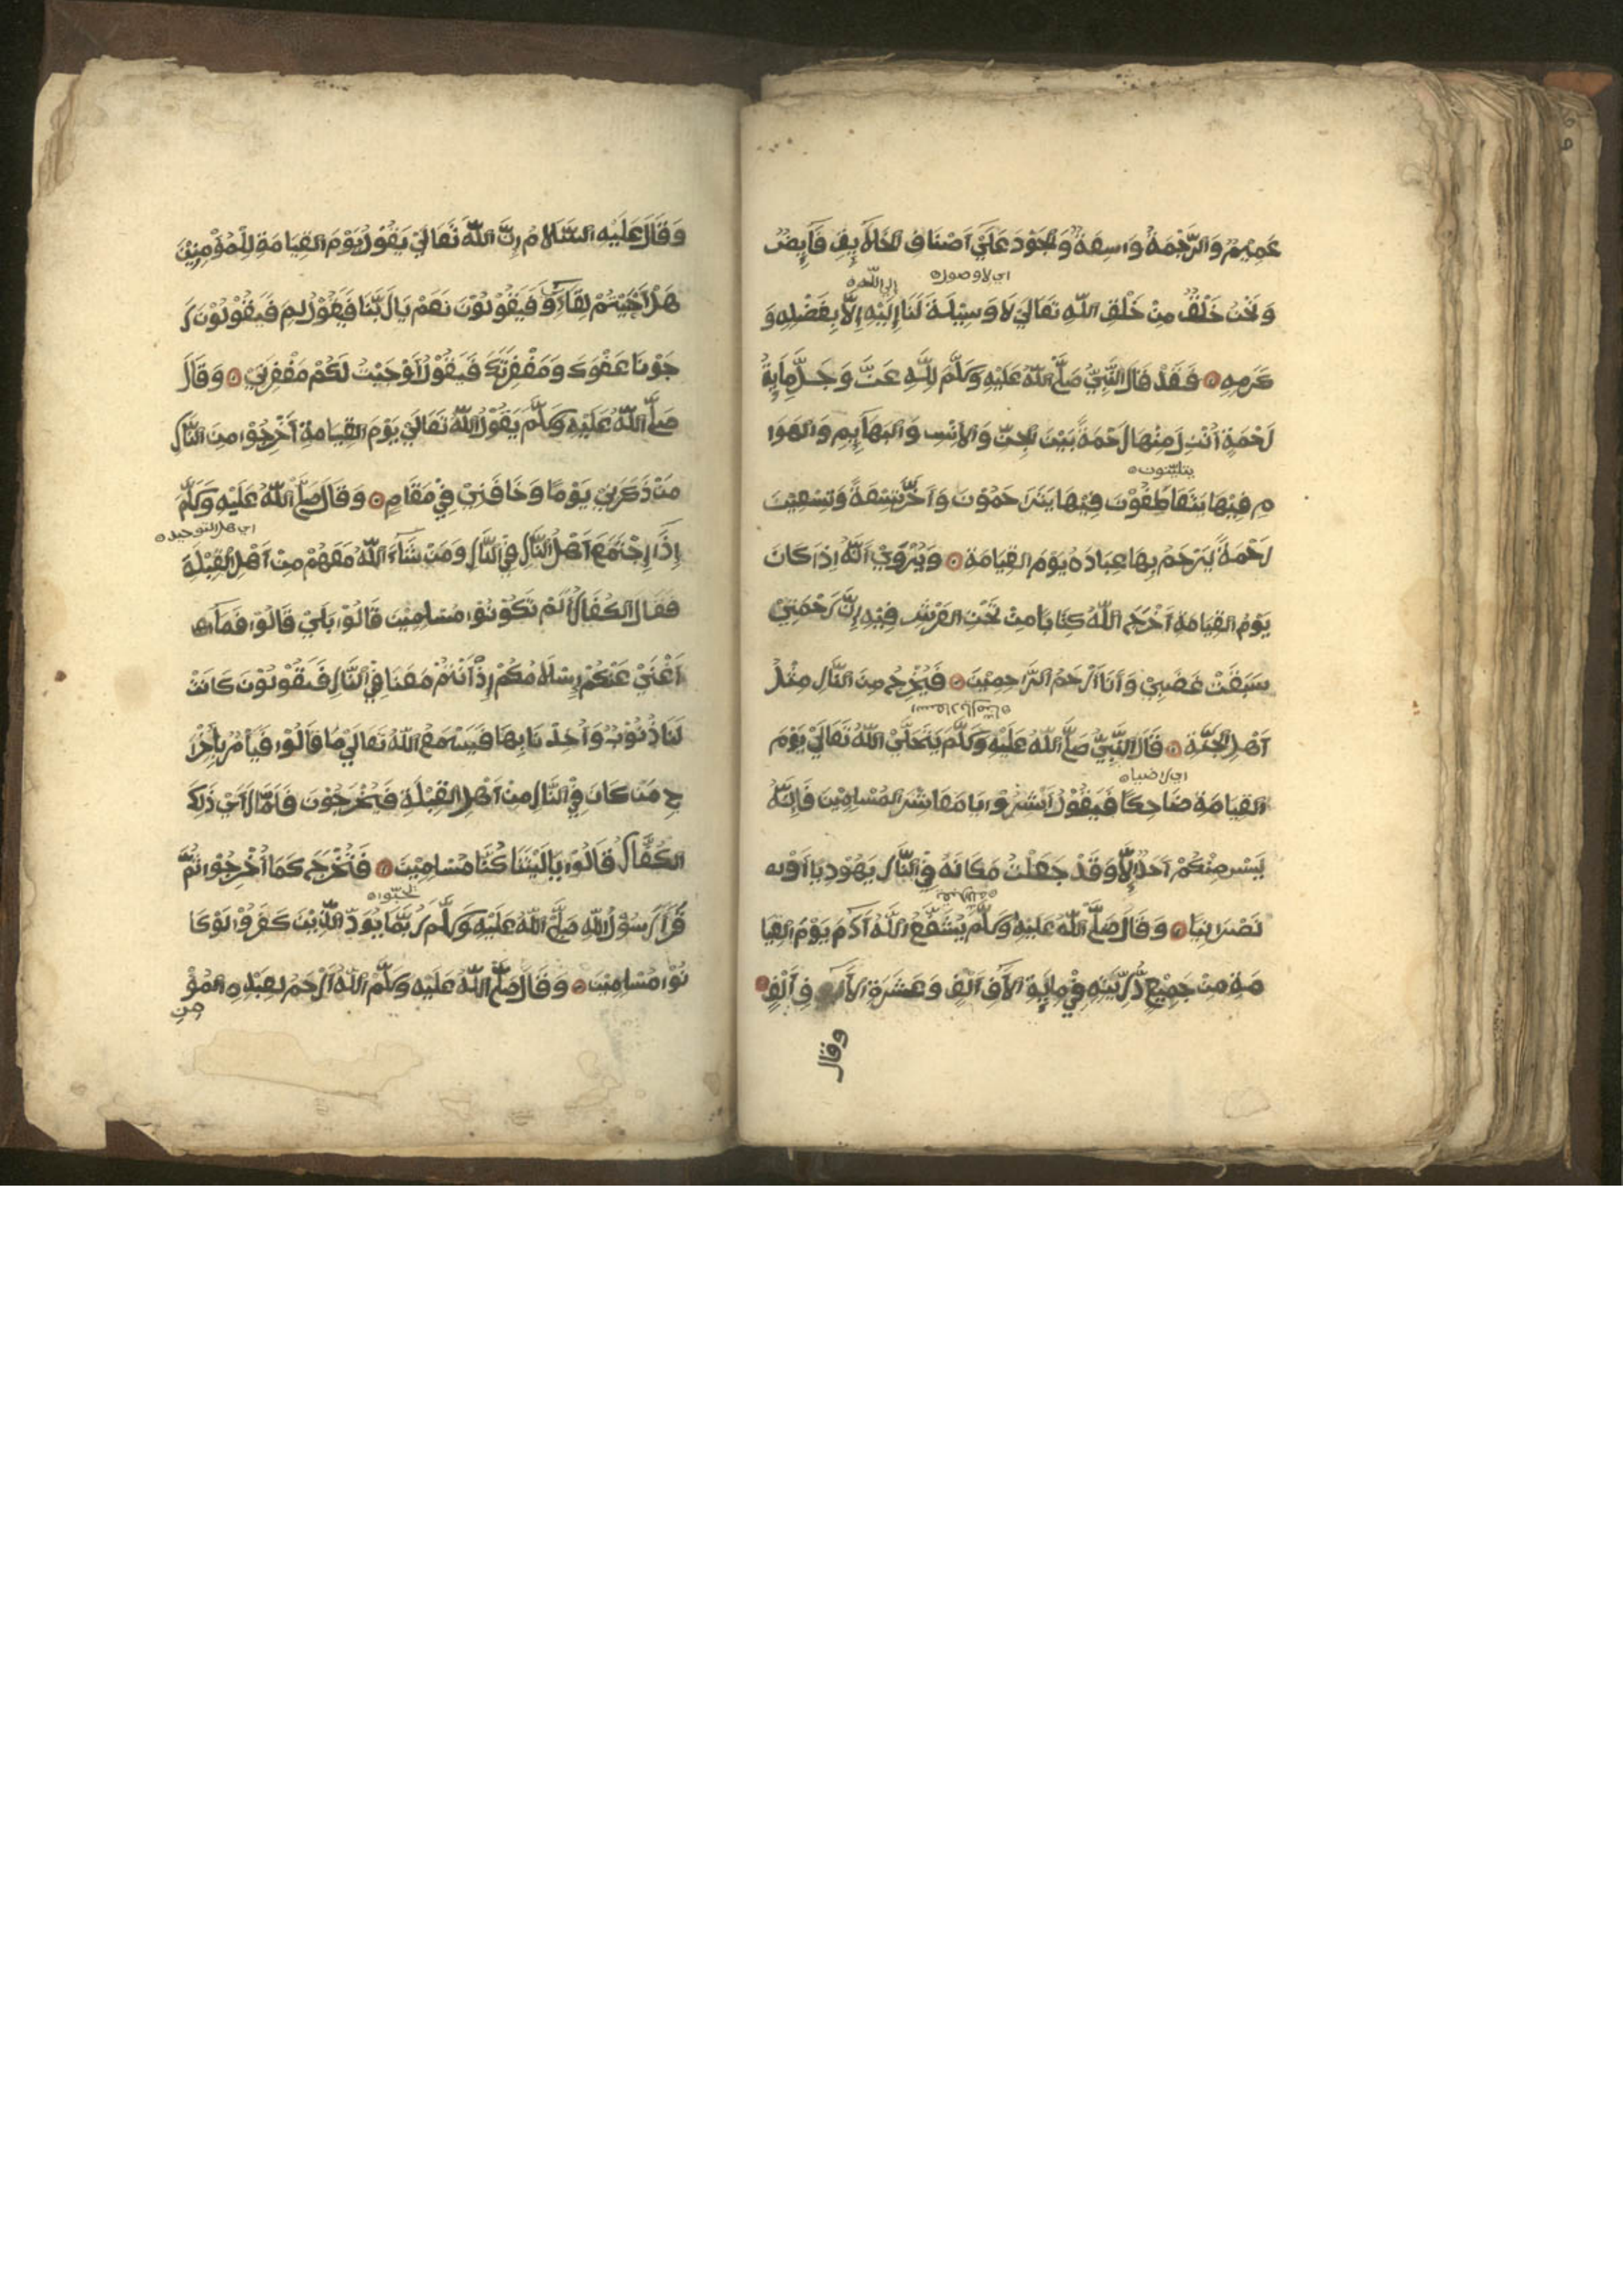 عَمِيْمٌ وَالرَّحْمَةُ وَاسِعَةٌ وَالْجَوْدَ عَلَيْ اَصْنَافِ الخَلَآيِفِ فَآيِضٌ
اي لا وصول
الي اللّه
وَنَحْنُ خَلْقٌ مِنْ خَلْقِ اللّهِ تَعَالَيٰ لَا وَسِيْلَةَ لَنَا اِلَيْهِ اِلَّا بِفَضْلِهِ وَ
كَرَمِهِ فَقَدْ قَالَ النَّبِيُّ صَلَّي اللّهُ عَلَيْهِ وَسَلَّمَ لِلّهِ عَزَّ وَجَلَّ مِآيَةُ
رَحْمَةٍ اُنْزِلَ مِنْهَا رَحْمَةً بَيْنَ الجِنِّ وَالاِنْسِ وَالبَهَآيِمِ وَالهَوَا
يتليّنون
مِ فِيْهَا يَتَعَاطِفُوْنَ فِيْهَا يَتَرَاحَمُوْنَ وَاَخَّرَ تِسْعَةً وَتِسْعِيْنَ
رَحْمَةً يَرْحَمُ بِهَا عِبَادَهُ يَوْمَ القِيَامَةِ وَيُرْوَيْ اَنَّهُ اِذَا كَانَ
يَوْمُ القِيَامَةِ اَخْرَجَ اللّهُ كِتَابًا مِنْ تَحْتِ العَرْشِ فِيْهِ اِنَّ رَحْمَتِيْ
سَبَقَتْ غَضَبِيْ وَاَنَا اَرْحَمُ الرَّاحِمِيْنَ فَيُخْرِجُ مِنَ النَّارِ مِثْلُ
اَهْلِ الجَنَّةِ قَالَ النَّبِيُّ صَلَّي اللّهُ عَلَيْهِ وَسَلَّمَ يَتَجَلَّيْ اللّهُ تَعَالَيْ يَوْمَ
اي راضيا
القِيَامَةِ ضَاحِكًا فَيَقُوْلُ اَبْشِرُوْا يَا مَعَاشِرَ المُسْلِمِيْنَ فَاِنَّهُ
لَيْسَ مِنْكُمْ اَحَدٌ اِلَّا وَقَدْ جَعَلْتُ مَكَانَهُ فِيْ النَّارِ يَهُوْدِيًّا اَوْ
نَصْرَنِيًّا وَقَالَ صَلَّي اللّهُ عَلَيْهِ وَسَلَّمَ يُشَفِّعُ اللّهُ آدَمَ يَوْمَ القِيَا
مَةِ مِنْ جَمِيْعِ ذُرِّيَّتِهِ فِيْ مِآيَةِ الآفِ اَلْفٍ وَعَشَرَةِ الآفِ اَلْفٍ
وقال
وَقَالَ عَلَيْهِ السَّلَامُ اِنَّ اللّهَ تَعَالَيْ يَقُوْلُ يَوْمَ القِيَامَةِ لِلْمُؤْمِنِيْنَ
هَلْ اَحْبَبْتُمْ لِقَآءِيْ فَيَقُوْلُوْنَ نَعَمْ يَا رَبَّنَا فَيَقُوْلُ لِمَ فَيَقُوْلُوْنَ رَ
جَوْنَا عَفْوَكَ وَمَغْفِرَتَكَ فَيَقُوْلُ اَوْجَبْتُ لَكُمْ مَغْفِرَتِيْ وَقَالَ
صَلَّي اللّهُ عَلَيْهِ وَسَلَّمَ يَقُوْلُ اللّهُ تَعَالَيْ يَوْمَ القِيَامَةِ اَخْرِجُوْا مِنَ النَّارِ
مَنْ ذَكَرَنِيْ يَوْمًا وَخَافَنِيْ فِيْ مَقَامٍ وَقَالَ صَلَّي اللّهُ عَلَيْهِ وَسَلَّمَ
اي اهل التوحيد
اِذَا اِجْتَمَعَ اَهْلُ النَّارِ فِيْ النَّارِ وَمَنْ شَآءَ اللّهُ مَعَهُمْ مِنْ اَهْلِ القِبْلَةِ
فَقَالَ الكُفَّارُ اَلَمْ تَكُوْنُوْا مُسْلِمِيْنَ قَالُوْا بَلَيْ قَالُوْا فَمَآ
اَغْنَيْ عَنْكُمْ اِسْلَامُكُمْ اِذْ اَنْتُمْ مَعَنَا فِيْ النَّارِ فَيَقُوْلُوْنَ كَانَتْ
لَنَا ذُنُوْبٌ وَاُخِذْنَا بِهَا فَيَسْمَعُ اللّهُ تَعَالَيْ مَا قَالُوْا فَيَاْمُرُ بِاِخْرَا
جِ مَنْ كَانَ فِيْ النَّارِ مِنْ اَهْلِ القِبْلَةِ فَيُخْرَجُوْنَ فَاَمَّا رَاَيْ ذَلِكَ
الكُفَّارُ قَالُوْا يَا لَيْتَنَا كُنَّا مُسْلِمِيْنَ فَنُخْرَجَ كَمَا اُخْرِجُوْا ثُمَّ
قَرَأَ رَسُوْلُ اللّهِ صَلَّي اللّهُ عَلَيْهِ وَسَلَّمَ رُبَّمَا يَوَدُّ الَّذِيْنَ كَفَرُوْا لَوْ كَا
نُوْا مُسْلِمِيْنَ وَقَالَ صَلَّي اللّهُ عَلَيْهِ وَسَلَّمَ اللّهُ اَرْحَمُ لِعَبْدِهِ المُؤْ
مِنِ